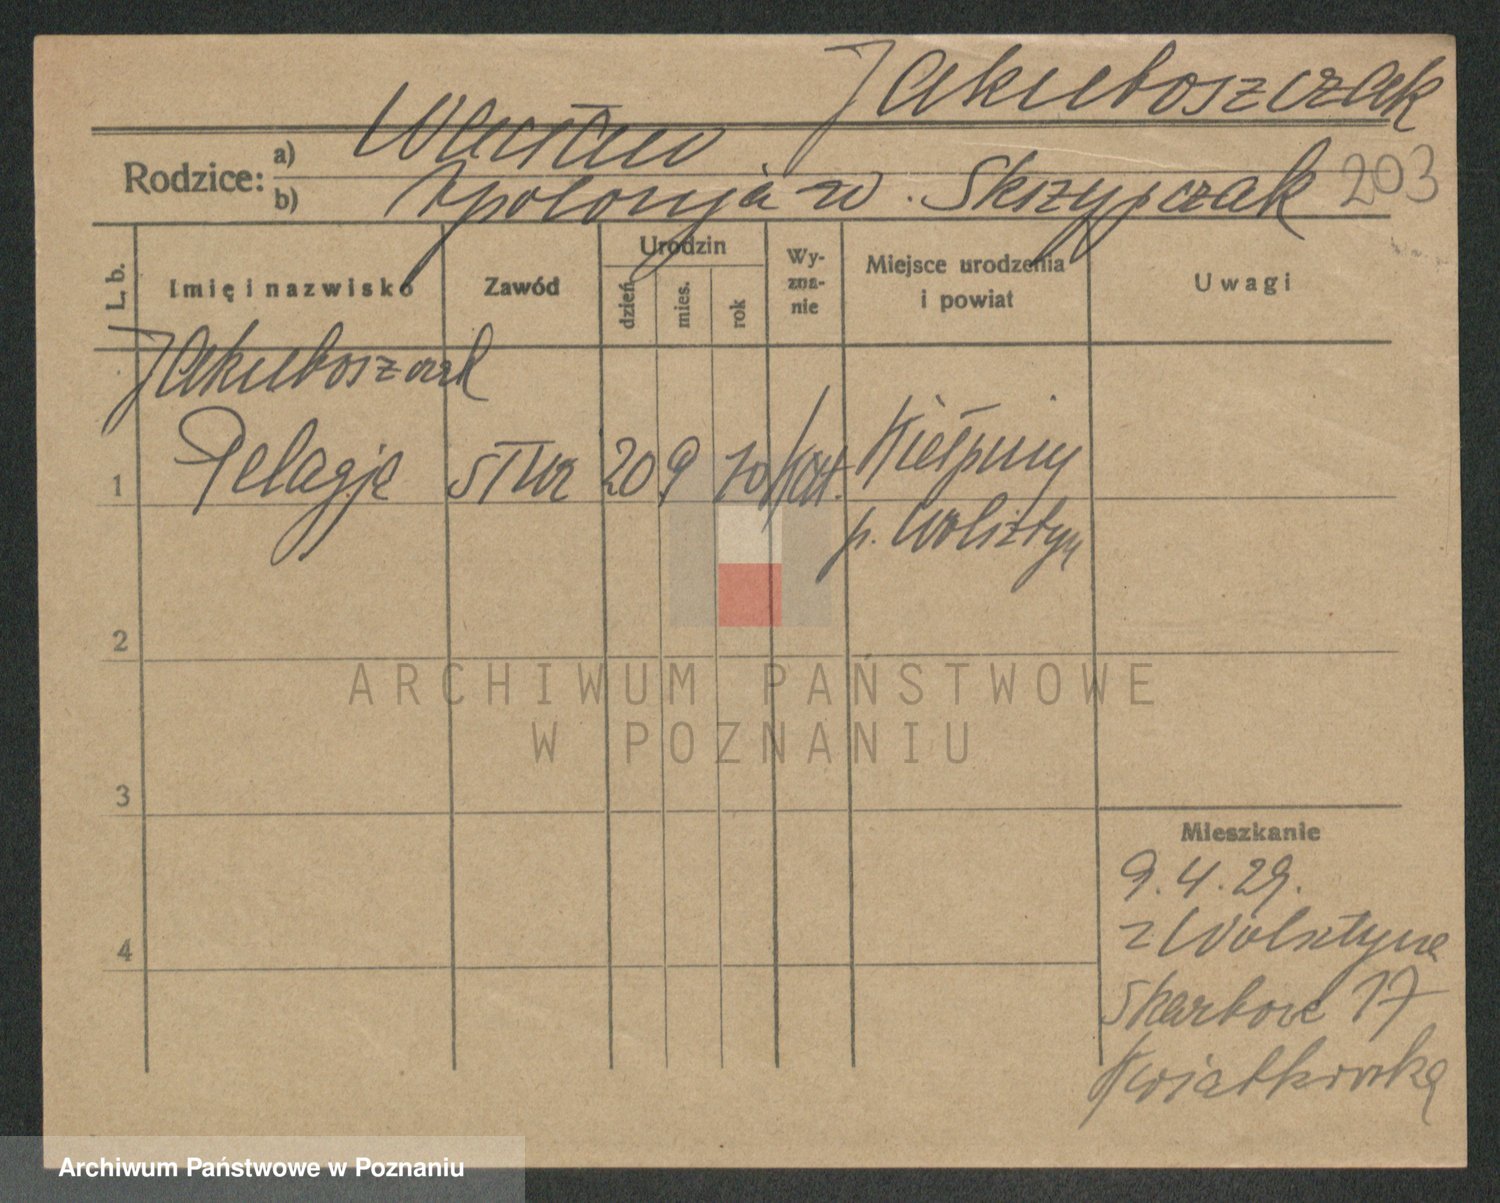 Jakuboszczak
Rodzice: a) Wacław
b) Apolonja z d. Skrzypczak 203
L. b.
Imię i nazwisko
Zawód
Urodzin
dzień
mies.
rok
Wy-
zna-
nie
Miejsce urodzenia
i powiat
Uwagi
Jakuboszczak
1 Pelagja służ 20 9 10 kat. Kiełpiny
p. Wolsztyn
2
3
4
Mieszkanie
9.4.29.
z Wolsztyna
Skarbowa 17
Kwiatkowska
ARCHIWUM PAŃSTWOWE
W POZNANIU
Archiwum Państwowe w Poznaniu